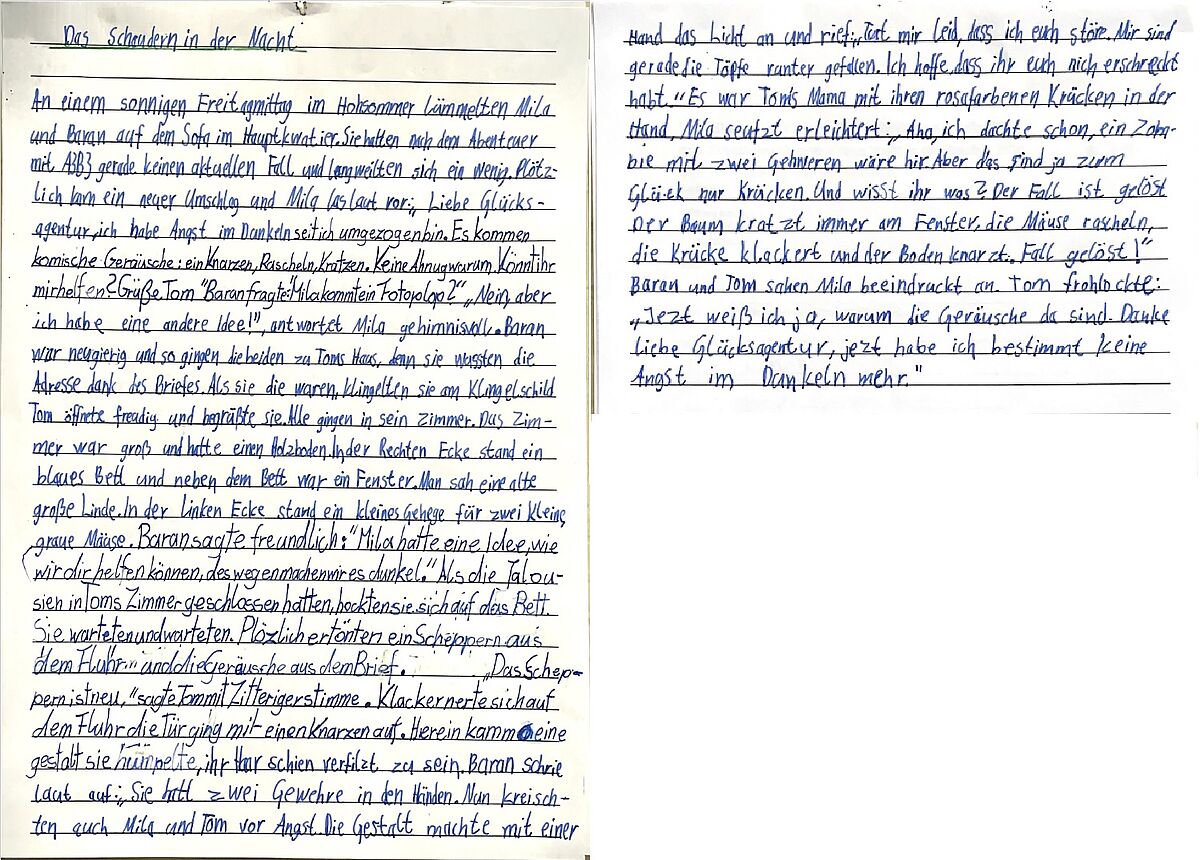 Das Schaudern in der Nacht
An einem sonnigen Freitagmittag im Hohsommer lümmelten Mila
und Baran auf dem Sofa im Hauptkwatier. Sie hatten nach dem Abenteuer
mit ABB3 gerade keinen aktuellen Fall und langweilten sich ein wenig. Plötz-
lich kam ein neuer Umschlag und Mila las laut vor: „Liebe Glücks-
agentur, ich habe Angst im Dunkeln seit ich umgezogen bin. Es kommen
komische Geräusche: ein Knarzen, Rascheln, Kratzen. Keine Ahnug warum. Könnt ihr
mir helfen? Grüße, Tom" Baran fragte: "Mila kommt ein Fotopolop?" „Nein, aber
ich habe eine andere Idee!", antwortet Mila gehimnisvoll. Baran
war neugierig und so gingen die beiden zu Toms Haus, denn sie wussten die
Adresse dank des Briefes. Als sie die waren, klingelten sie am Klingelschild
Tom öffnete freudig und begrüßte sie. Alle gingen in sein Zimmer. Das Zim-
mer war groß und hatte einen Holzboden. In der Rechten Ecke stand ein
blaues Bett und neben dem Bett war ein Fenster. Man sah eine alte
große Linde. In der linken Ecke stand ein kleines Gehege für zwei kleine
graue Mäuse. Baran sagte freundlich: "Mila hatte eine Idee, wie
wir dir helfen können, deswegen machen wir es dunkel." Als die Jalou-
sien in Toms Zimmer geschlossen hatten, hockten sie sich auf das Bett.
Sie warteten und warteten. Plözlich ertönten ein Scheppern aus
dem Fluhr... und die Geräusche aus dem Brief. „Das Schep-
pern ist neu," sagte Tom mit Zitteriger stimme. Klackern erte sich auf
dem Fluhr die Tür ging mit einen Knarzen auf. Herein kamm eine
gestalt sie hümpelte, ihr Haar schien verfilzt zu sein. Baran schrie
laut auf: „Sie hatt zwei Gewehre in den Händen. Nun kreisch-
ten auch Mila und Tom vor Angst. Die Gestalt machte mit einer
Hand das Licht an und rief: „Tut mir leid, dass ich euch störe. Mir sind
gerade die Töpfe runter gefallen. Ich hoffe, dass ihr euch nich erschreckt
habt." Es war Toms Mama mit ihren rosafarbenen Krücken in der
Hand, Mila seufzt erleichtert: „Aha, ich dachte schon, ein Zom-
bie mit zwei Gehweren wäre hir. Aber das sind ja zum
Glück nur Krücken. Und wisst ihr was? Der Fall ist gelöst
Der Baum kratzt immer am Fenster, die Mäuse rascheln,
die Krücke klackert und der Boden knarzt. Fall gelöst!"
Baran und Tom sahen Mila beeindruckt an. Tom frohlockte:
„Jezt weiß ich ja, warum die Geräusche da sind. Danke
liebe Glücksagentur, jezt habe ich bestimmt keine
Angst im Dunkeln mehr."